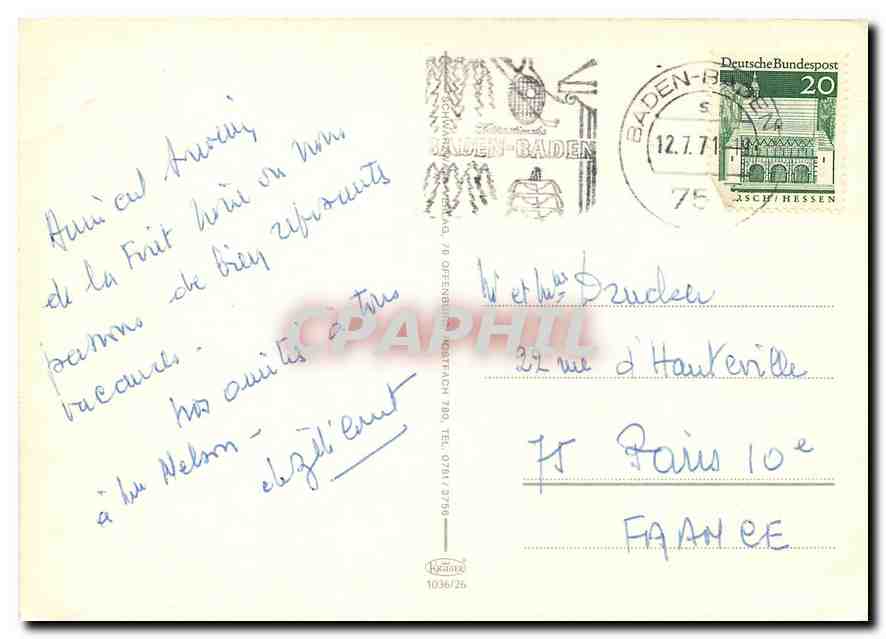 Amical souvenir
de la Forêt Noire où nous
passons de bien reposantes
vacances.
Nos amitiés à tous
à Nelson -
Deutsche Bundespost
20
RSCH/HESSEN
BADEN-BADEN
BADEN-BADEN
12.7.71
75
SCHWARZ
VERLAG, 76 OFFENBURG, POSTFACH 780, TEL. 0781/3756
Mr et Mme
22 rue d'Hauteville
75 Paris 10e
FRANCE
KRÜGER
1036/26
CPAPHIL